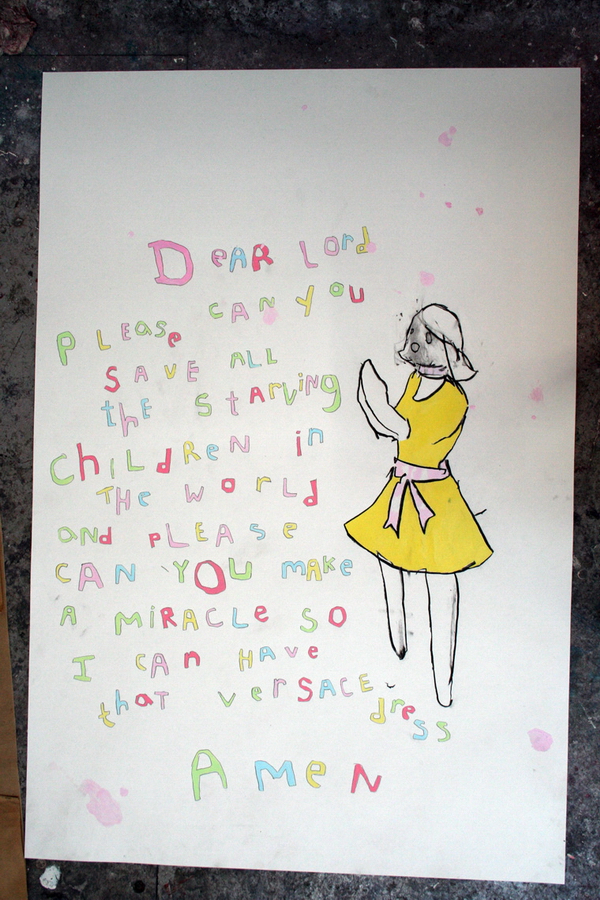 DEAR LOrd
PLEase CAN YoU
SAvE ALL
thE StArviNg
ChiLdReN in
THe worLd
aNd pLEAse
CAN YOU mAKe
A MiRACLe SO
I CAn HAve
thaT verSACE
dress
AmeN